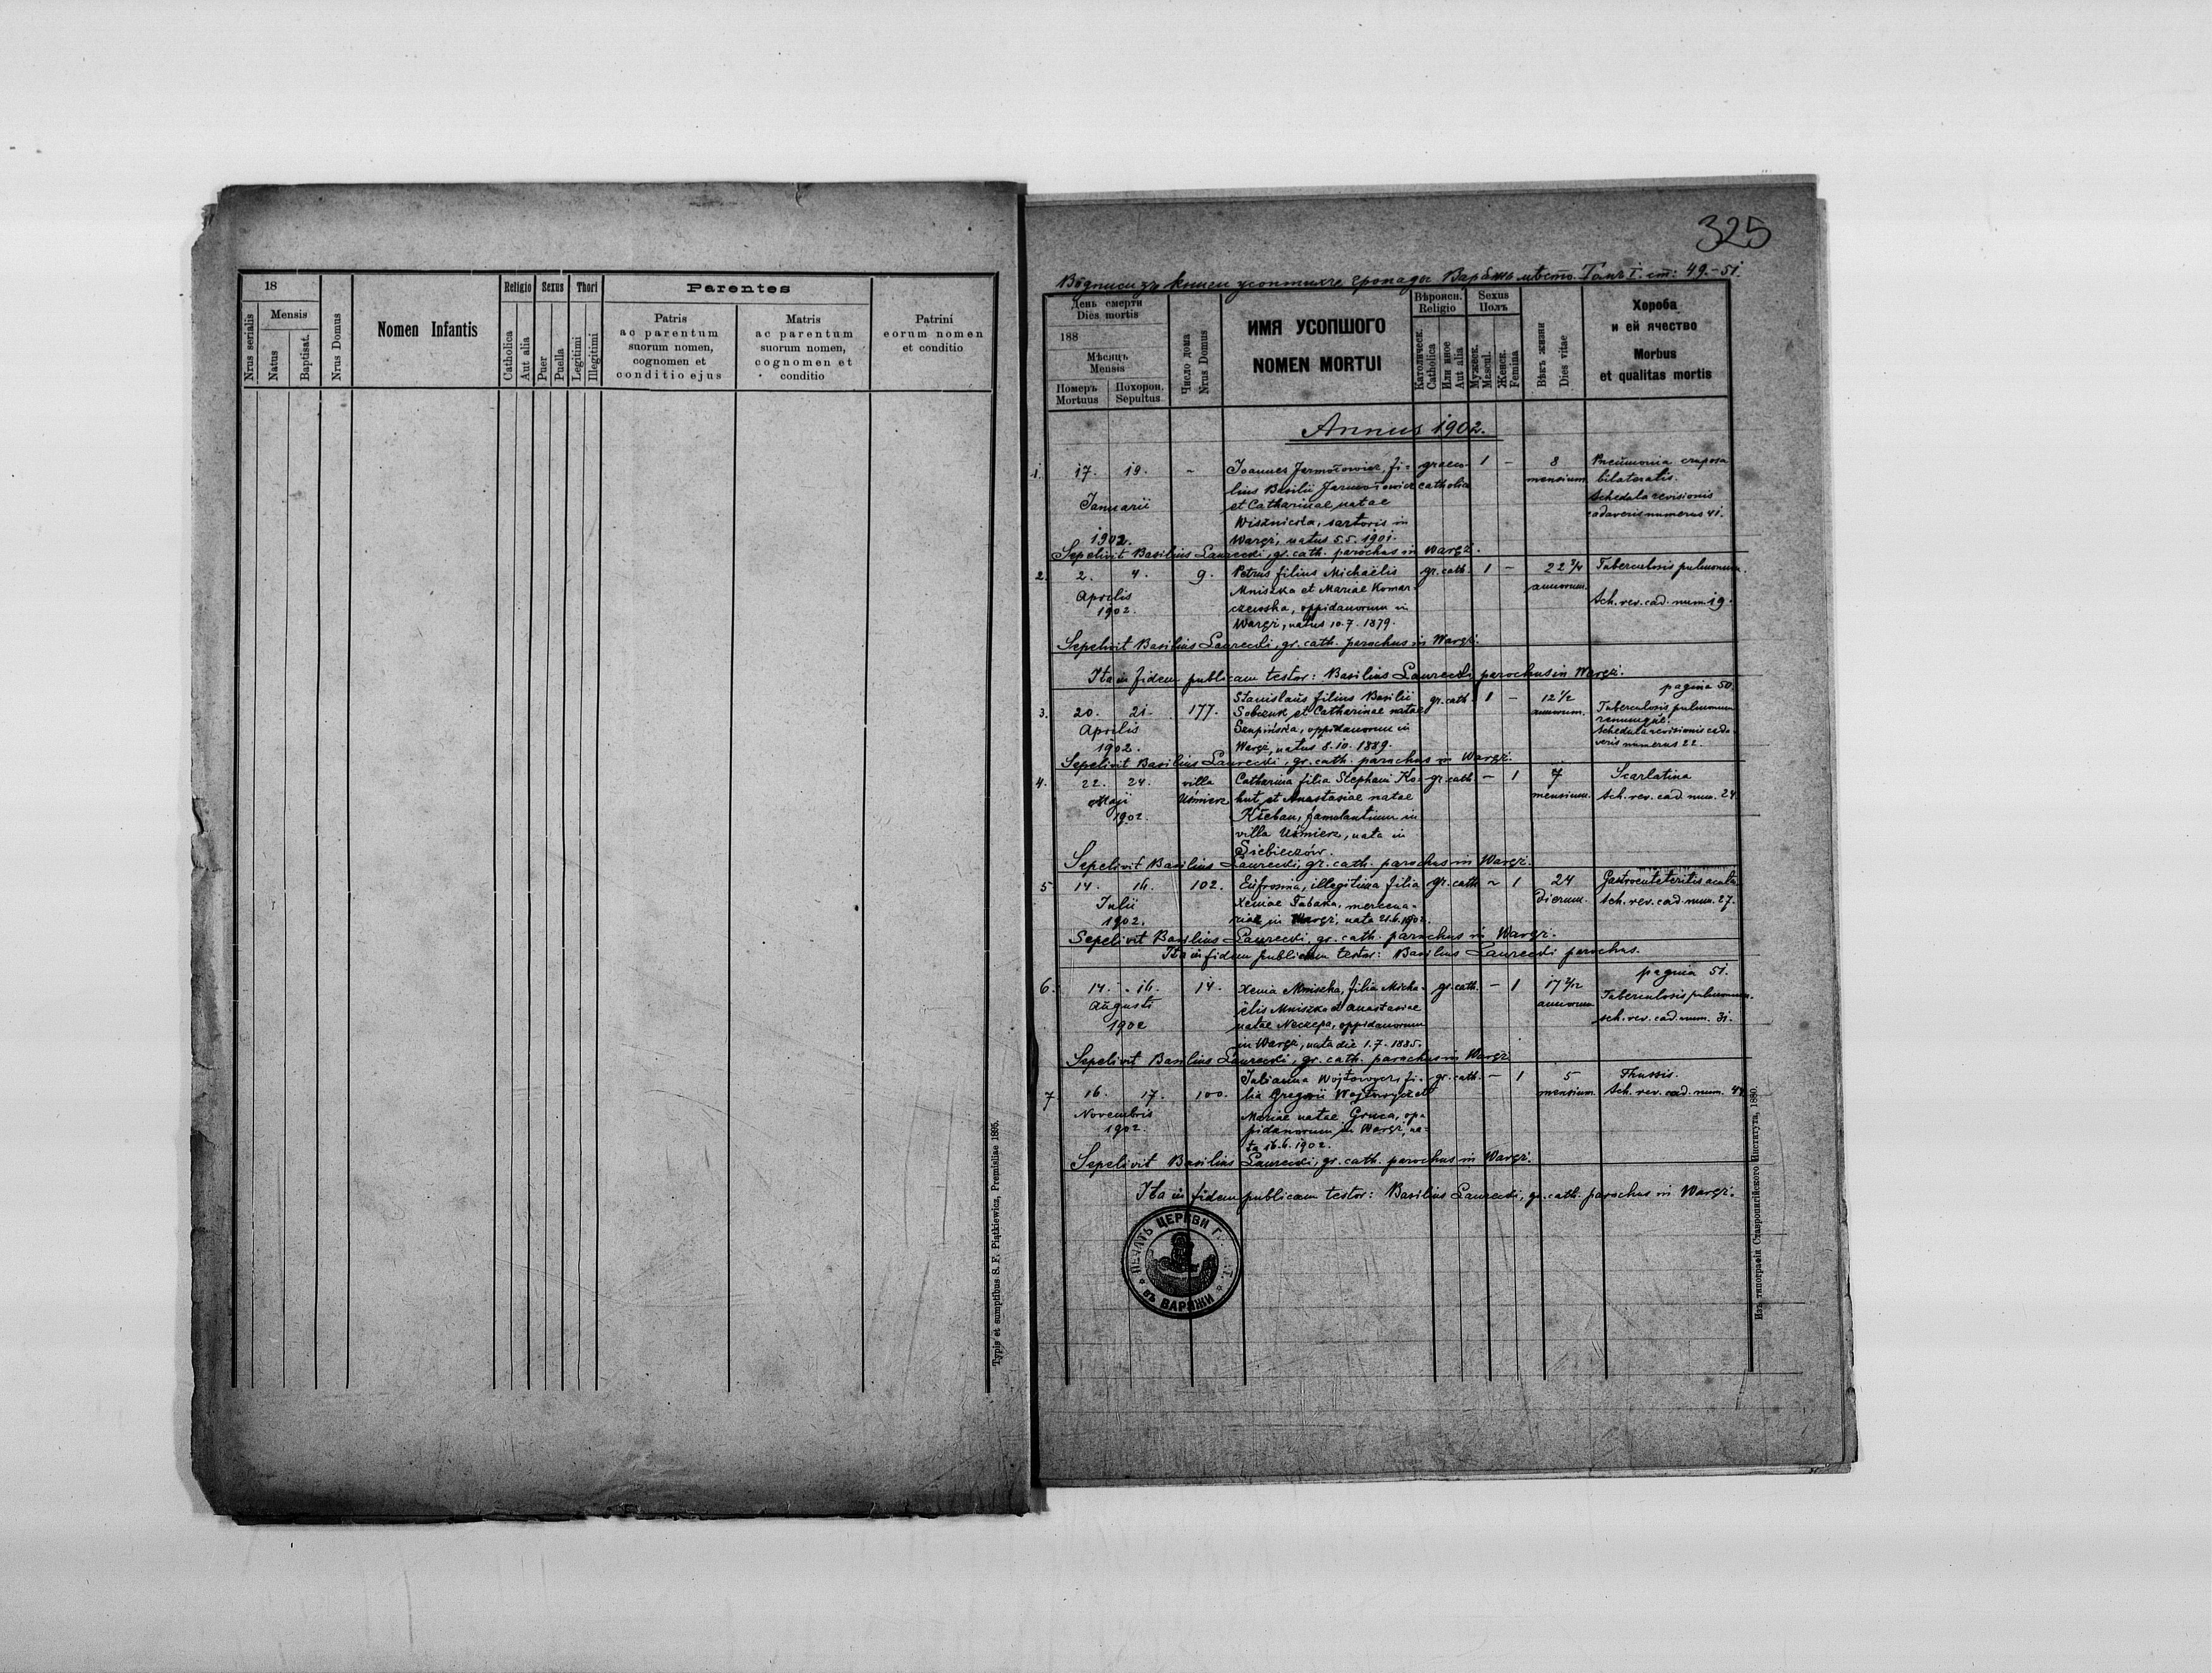 18
Mensis
Nrus serialis
Natus
Baptisat.
Nrus Domus
Nomen Infantis
Religio
Catholica
Aut alia
Sexus
Puer
Puella
Thori
Legitimi
Illegitimi
Parentes
Patris
ac parentum
suorum nomen,
cognomen et
conditio ejus
Matris
ac parentum
suorum nomen,
cognomen et
conditio
Patrini
eorum nomen
et conditio
Typis et sumptibus S. F. Piątkiewicz, Premisliae 1895.
325
49.-51.
День смерти
Dies mortis
188
Мѣсяцъ
Mensis
Номеръ
Mortuus
Похорон.
Sepultus
Число дома
Nrus Domus
ИМЯ УСОПШОГО
NOMEN MORTUI
Вѣроисп.
Religio
Католическ.
Catholica
Или иное
Aut alia
Sexus
Полъ
Мужеск.
Mascul.
Женск.
Femina
Вѣкъ жизни
Dies vitae
Хороба
и ей ячество
Morbus
et qualitas mortis
Annus 1902.
1. 17. 19. - Joannes Jarmołowicz, fi- graeco- 1 - 8 Pneumonia cruposa
lius Basilii Jarmołowicz catholica mensium bilateralis.
Januarii et Catharinae natae Schedula revisionis
Wisznicka, sartoris in cadaveris numerus 41.
1902. Waręż, natus 5.5.1901.
Sepelivit Basilius Laurecki, gr. cath. parochus in Waręż.
2. 2. 4. 9. Petrus filius Michaëlis gr. cath. 1 - 22 3/4 Tuberculosis pulmonum.
Aprilis Mniszka et Mariae Komar- annorum.
1902. czewska, oppidanorum in Sch. rev. cad. num. 19.
Waręż, natus 10.7.1879.
Sepelivit Basilius Laurecki, gr. cath. parochus in Waręż.
Ita in fidem publicam testor: Basilius Laurecki parochus in Waręż.
pagina 50.
3. 20. 21. 177. Stanislaus filius Basilii gr. cath. 1 - 12 1/2 Tuberculosis pulmonum
et Catharinae natae annorum.
Aprilis oppidanorum in Schedula revisionis cada-
1902. Waręż, natus 8.10.1889. veris numerus 22.
Sepelivit Basilius Laurecki, gr. cath. parochus in Waręż.
4. 22. 24. villa Catharina filia Stephani Ko- gr. cath. - 1 7 Scarlatina
Maji Uśmierz hut et Anastasiae natae mensium. Sch. rev. cad. num. 24.
1902. Kłeban, famulantium in
villa Uśmierz, nata in
Siebieczów.
Sepelivit Basilius Laurecki, gr. cath. parochus in Waręż.
5 14. 16. 102. Eufrosina, illegitima filia gr. cath. - 1 24 Gastroenteteritis acuta
Julii Xeniae Tabaka, mercena- dierum. Sch. rev. cad. num. 27.
1902. riae in Waręż, nata 21.6.1902.
Sepelivit Basilius Laurecki, gr. cath. parochus in Waręż.
Ita in fidem publicam testor: Basilius Laurecki parochus.
pagina 51.
6. 14. 16. 14. Xenia Mniszka, filia Micha- gr. cath. - 1 17 2/12 Tuberculosis pulmonum.
Augusti ëlis Mniszka et Anastasiae annorum
1902 natae oppidanorum Sch. rev. cad. num. 31.
in Waręż, nata die 1.7.1885.
Sepelivit Basilius Laurecki, gr. cath. parochus in Waręż
7 16. 17. 100. Julianna Wojtowycz, fi- gr. cath. - 1 5 Thussis.
lia Gregorii Wojtowycz et mensium. Sch. rev. cad. num. 44
Novembris Mariae natae Gruca, op-
1902. pidanorum in Waręż, na-
ta 16.6.1902.
Sepelivit Basilius Laurecki, gr. cath. parochus in Waręż.
Ita in fidem publicam testor: Basilius Laurecki, gr. cath. parochus in Waręż.
ПЕЧАТЬ ЦЕРКВИ
въ ВАРЯЖИ
Изъ типографіи Ставропигійского Института, 1880.